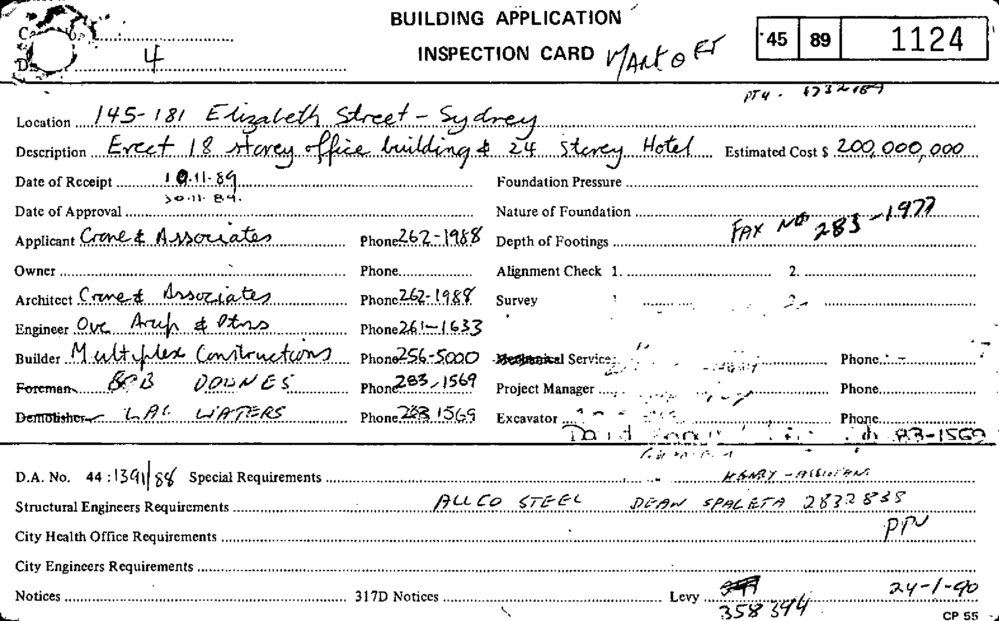 BUILDING APPLICATION
INSPECTION CARD
45 89 1124
4
Location 145-181 Elizabeth Street - Sydney
Description Erect 18 storey office building & 24 storey Hotel Estimated Cost $ 200,000,000
Date of Receipt 10.11.89 Foundation Pressure
Date of Approval 30.11.89. Nature of Foundation
FAX No 283-1977
Applicant Crone & Associates Phone 262-1988 Depth of Footings
Owner Phone Alignment Check 1. 2.
Architect Crone & Associates Phone 262-1988 Survey
Engineer Ove Arup & Ptnrs Phone 261-1633
Builder Multiplex Constructions Phone 256-5000 Mechanical Services Phone
Foreman BOB DOWNES Phone 283,1569 Project Manager Phone
Demolisher WATERS Phone 283 1569 Excavator Phone
D.A. No. 44: 1391/88 Special Requirements HENRY
Structural Engineers Requirements ALLCO STEEL DEAN SPALETA 2832838
City Health Office Requirements
City Engineers Requirements
Notices 317D Notices Levy 358344 24-1-90
CP 55